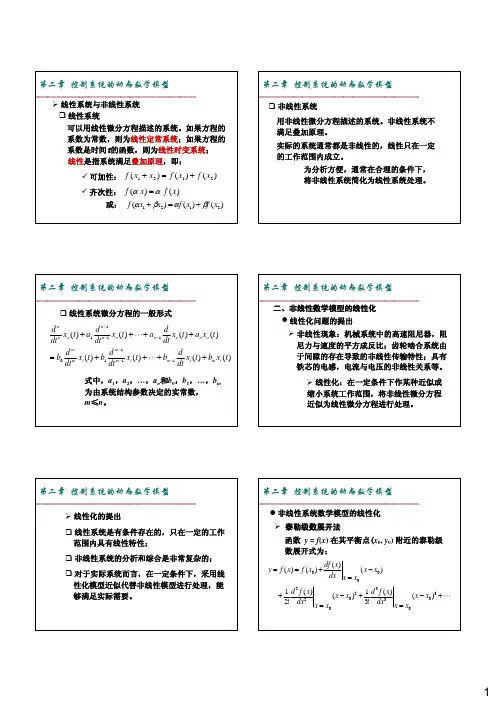 第二章 控制系统的动态数学模型
➢ 线性系统与非线性系统
❑ 线性系统
可以用线性微分方程描述的系统。如果方程的
系数为常数，则为线性定常系统；如果方程的
系数是时间t的函数，则为线性时变系统；
线性是指系统满足叠加原理，即：
✓ 可加性： f(x₁ + x₂) = f(x₁) + f(x₂)
✓ 齐次性： f(αx) = αf(x)
或： f(αx₁ + βx₂) = αf(x₁) + βf(x₂)
第二章 控制系统的动态数学模型
❑ 非线性系统
用非线性微分方程描述的系统。非线性系统不
满足叠加原理。
实际的系统通常都是非线性的，线性只在一定
的工作范围内成立。
为分析方便，通常在合理的条件下，
将非线性系统简化为线性系统处理。
第二章 控制系统的动态数学模型
❑ 线性系统微分方程的一般形式
dⁿ/dtⁿ xₒ(t) + a₁ dⁿ⁻¹/dtⁿ⁻¹ xₒ(t) + ⋯ + aₙ₋₁ d/dt xₒ(t) + aₙxₒ(t)
= b₀ dᵐ/dtᵐ xᵢ(t) + b₁ dᵐ⁻¹/dtᵐ⁻¹ xᵢ(t) + ⋯ + bₘ₋₁ d/dt xᵢ(t) + bₘxᵢ(t)
式中，a₁，a₂，…，aₙ和b₀，b₁，…，bₘ
为由系统结构参数决定的实常数，
m≤n。
第二章 控制系统的动态数学模型
二、非线性数学模型的线性化
● 线性化问题的提出
➢ 非线性现象：机械系统中的高速阻尼器，阻
尼力与速度的平方成正比；齿轮啮合系统由
于间隙的存在导致的非线性传输特性；具有
铁芯的电感，电流与电压的非线性关系等。
➢ 线性化：在一定条件下作某种近似或
缩小系统工作范围，将非线性微分方程
近似为线性微分方程进行处理。
第二章 控制系统的动态数学模型
➢ 线性化的提出
❑ 线性系统是有条件存在的，只在一定的工作
范围内具有线性特性；
❑ 非线性系统的分析和综合是非常复杂的；
❑ 对于实际系统而言，在一定条件下，采用线
性化模型近似代替非线性模型进行处理，能
够满足实际需要。
第二章 控制系统的动态数学模型
● 非线性系统数学模型的线性化
➢ 泰勒级数展开法
函数 y = f(x) 在其平衡点 (x₀, y₀) 附近的泰勒级
数展开式为：
y = f(x) = f(x₀) + df(x)/dx |x = x₀ (x − x₀)
+ 1/2! d²f(x)/dx² |x = x₀ (x − x₀)² + 1/3! d³f(x)/dx³ |x = x₀ (x − x₀)³ + ⋯
1